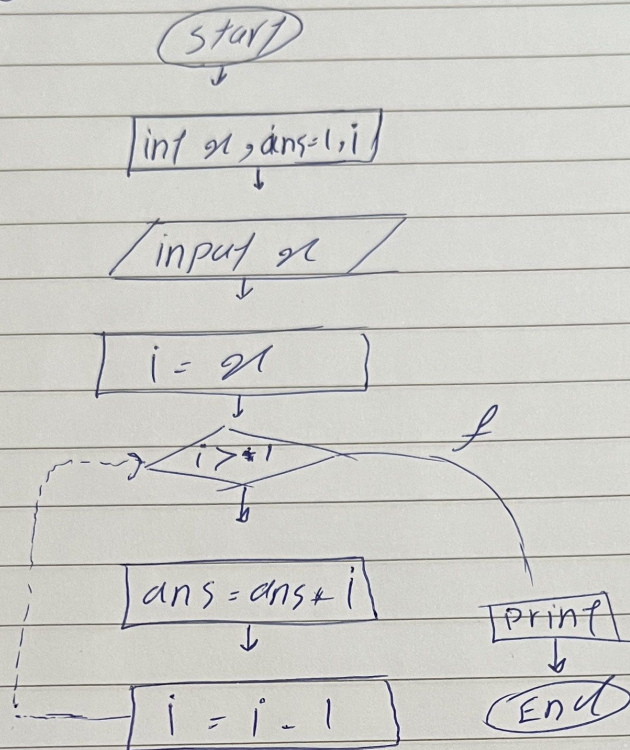 start
int x, ans=1, i
input x
i = x
i > 1
f
ans = ans * i
print
i = i - 1
End